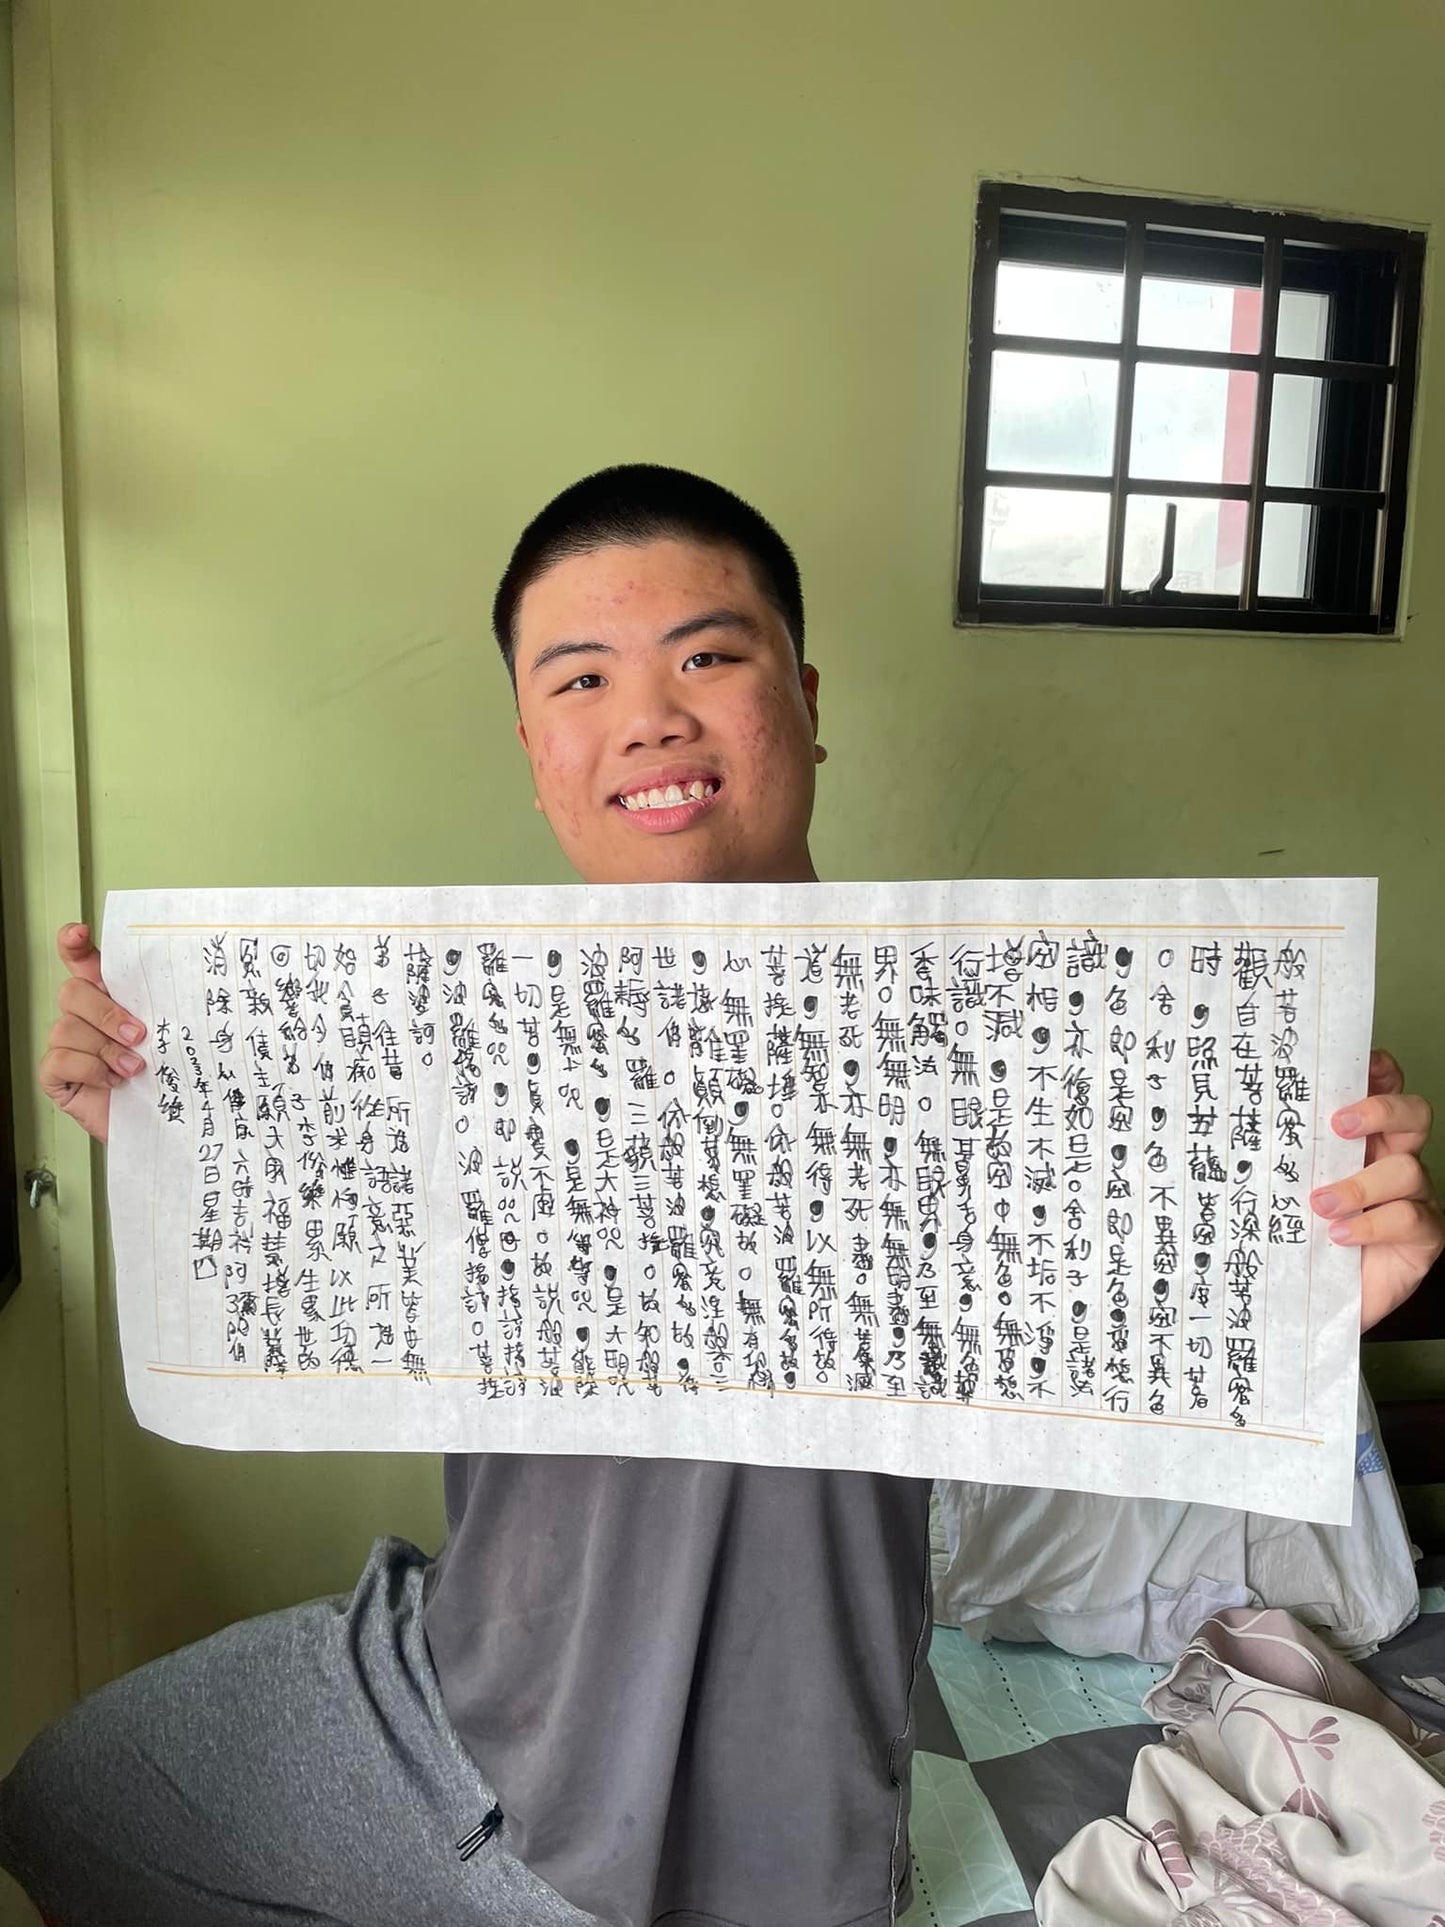 般若波羅蜜多心經
觀自在菩薩，行深般若波羅蜜多
時，照見五蘊皆空，度一切苦
。舍利子，色不異空，空不異色
，色即是空，空即是色，受想行
識，亦復如是。舍利子，是諸法
空相，不生不滅，不垢不淨，不
增不減，是故空中無色。無受想
行識。無眼耳鼻舌身意，無色聲
香味觸法。無眼界，乃至無意識
界。無無明，亦無無明盡，乃至
無老死，亦無老死盡。無苦集滅
道，無智亦無得，以無所得故。
菩提薩埵。依般若波羅蜜多故，
心無罣礙，無罣礙故。無有恐怖
，遠離顛倒夢想，究竟涅槃。三
世諸佛。依般若波羅蜜多故，得
阿耨多羅三藐三菩提。故知般若
波羅蜜多，是大神咒，是大明咒
，是無上咒，是無等等咒，能除
一切苦，真實不虛。故說般若波
羅蜜多咒，即說咒曰，揭諦揭諦
，波羅揭諦。波羅僧揭諦。菩提
薩婆訶。
弟子往昔所造諸惡業皆由無
始貪瞋痴從身語意之所造一
切我今佛前求懺悔願以此功德
回向給弟子李俊樂累生累世的
冤親債主願大眾福慧增長業障
消除身心健康六時吉祥阿彌陀佛
2023年4月27日星期四
李俊樂